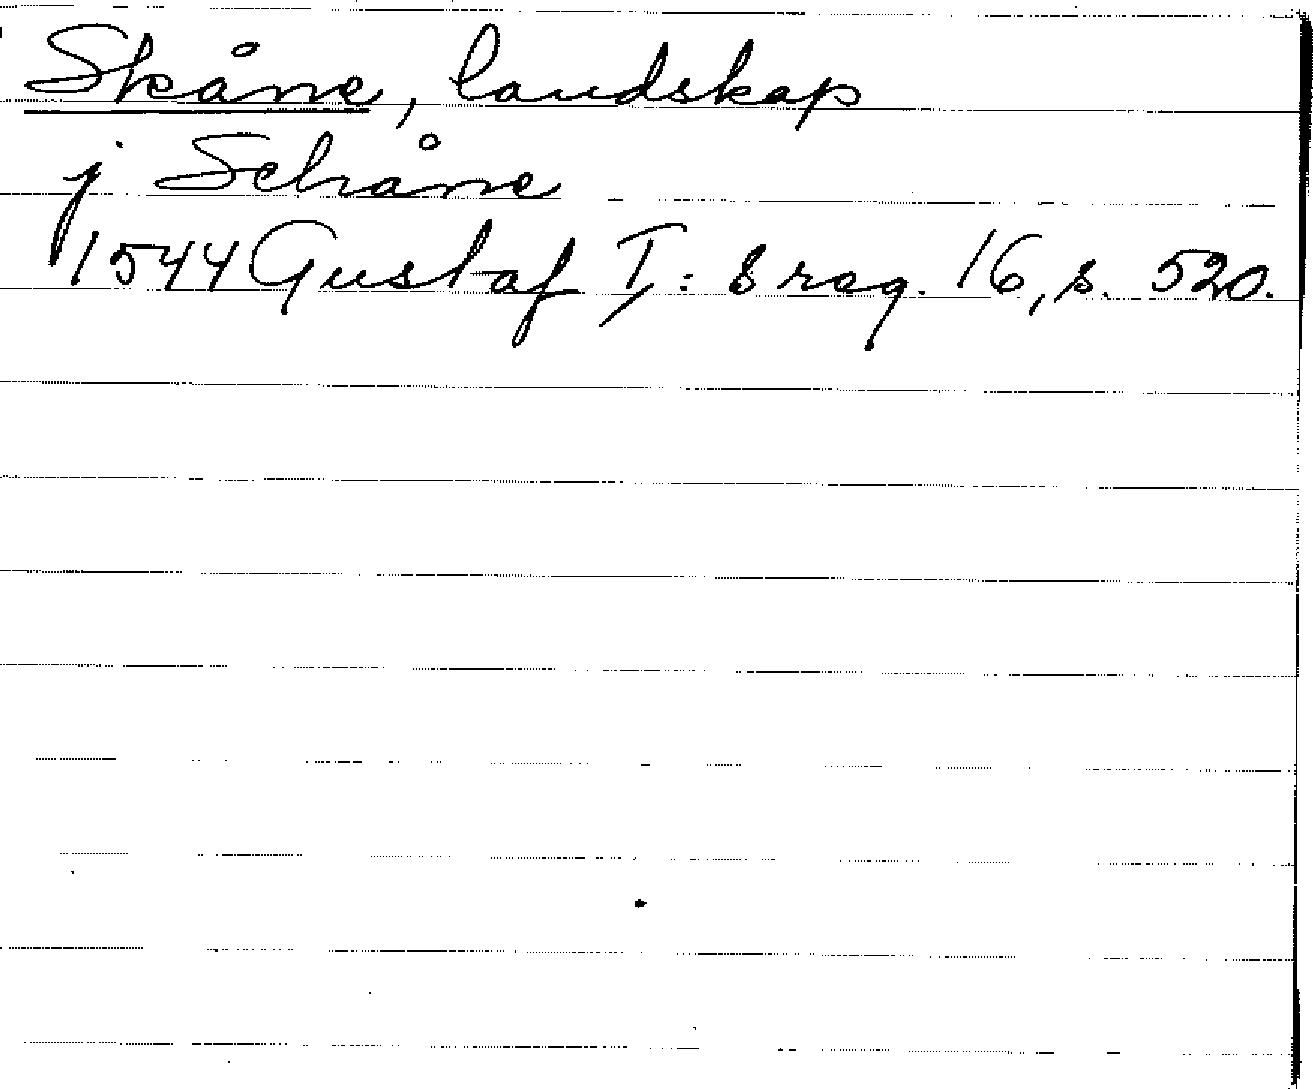 Skåne, landskap
j Schåne
1544 Gustaf I:s reg. 16, s. 520.